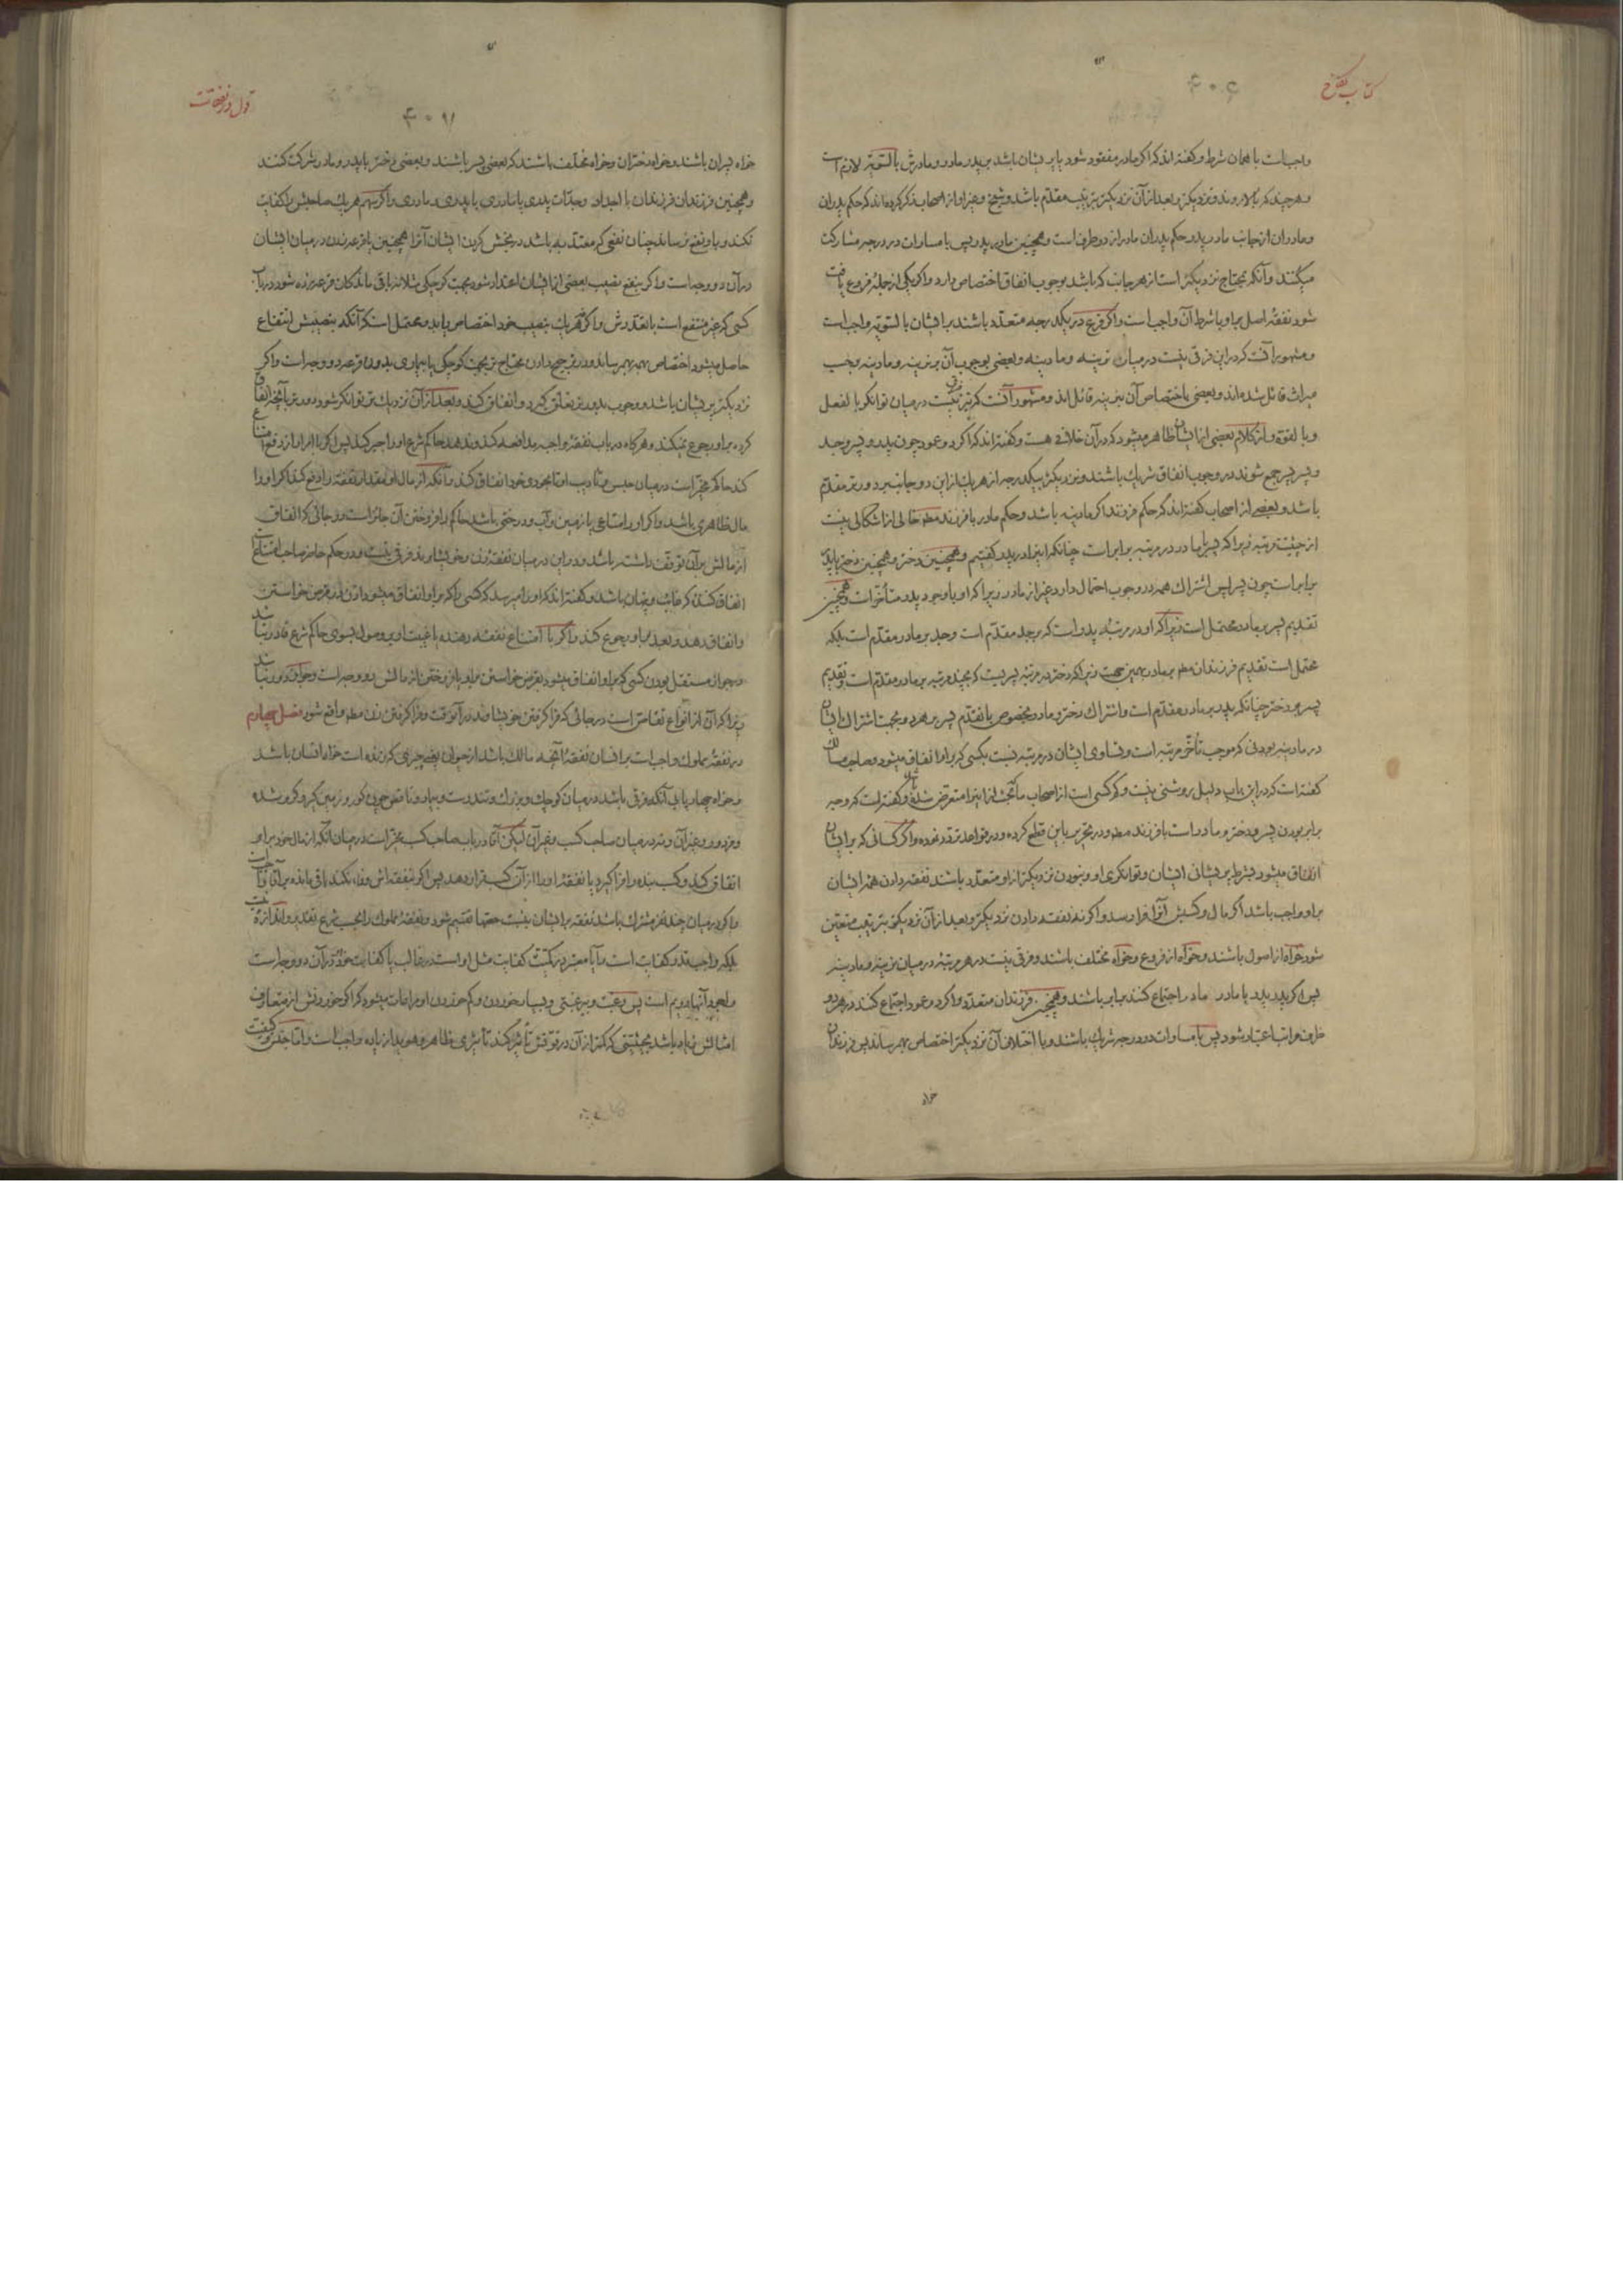 کتاب نکاح
۴۰۶
واجبست با همان شرط و گفته‌اند که اگر مادر مفقود شود یا پریشان باشد بر پدر مادر و مادرش بالسّویّه لازم است
و هر چند که بالا روند و نزدیکتر و بعد از آن نزدیکتر بترتیب مقدّم باشد و شیخ و غیر او از اصحاب ذکر کرده‌اند که حکم پدران
و مادران از جانب مادر پدر حکم پدران مادر از دو طرف است و همچنین مادر پدر پس با مساوات در درجه مشارکت
میکنند و آنکه بمحتاج نزدیکتر است از هر جانب که باشد بوجوب انفاق اختصاص دارد و اگر یکی از جمله فروع یافت
شود نفقهٔ اصل بر او با شرط آن واجب است و اگر فرع در یکدرجه متعدّد باشند بر ایشان بالسّویّه واجب است
و مشهور آنست که در این فرقی نیست در میان نرینه و مادینه و بعضی بوجوب آن بر نرینه و مادینه بحسب
میراث قائل شده‌اند و بعضی باختصاص آن بنرینه قائل‌اند و مشهور آنست که نیز فرق نیست در میان توانگر بالفعل
و بالقوّة و از کلام بعضی از ایشان ظاهر میشود که در آن خلافی هست و گفته‌اند که اگر دو عمود چون پدر و پسر و جد
و پسر پسر جمع شوند در وجوب انفاق شریک باشند و نزدیکتر بیکدرجه از هر یک از این دو جانب بر دورتر مقدّم
باشد و بعضی از اصحاب گفته‌اند که حکم فرزند اگر مادینه باشد و حکم مادر با فرزند مطم خالی از اشکالی نیست
از حیثیت رتبه زیرا که پسر با مادر در مرتبه برابر است چنانکه اینرا در پدر گفتیم و همچنین دختر و همچنین دختر با پدر
برابر است چون پس اشتراک همه در وجوب احتمال دارد غیر از مادر زیرا که او با وجود پدر متأخّر است و همچنین
تقدیم پسر بر مادر محتمل است زیرا که او در مرتبهٔ پدر است که بر جد مقدّم است و جد بر مادر مقدّم است بلکه
محتمل است تقدیم فرزندان مطم بر مادر بهمین جهت زیرا که دختر در مرتبهٔ پسریست که بچند مرتبه بر مادر مقدّم است و تقدیم
پسر بر دختر چنانکه پدر بر مادر مقدّم است و اشتراک دختر و مادر بخصوص با تقدّم پسر بر هر دو بجهت اشتراک ایشان
در مادینه بودن که موجب تأخّر مرتبه است و تساوی ایشان در مرتبه نسبت بکسی که بر او انفاق میشود و صاحب مسالك
گفته است که در این باب دلیل روشنی نیست و کم کسی است از اصحاب ما که بحث از اینرا متعرّض شده و گفته است که وجه
برابر بودن پسر و دختر و مادر است با فرزند مطم و در تحریر باین قطع کرده و در قواعد تردّد نموده و اگر کسانی که بر ایشان
انفاق میشود بشرط پریشانی ایشان و توانگری او و نبودن نزدیکتر از او متعدّد باشند نفقه دادن همه ایشان
بر او واجب باشد اگر مال و کسبش آنرا فرا رسد و اگر نه نفقه دادن نزدیکتر و بعد از آن نزدیکتر بترتیب متعیّن
شود خواه از اصول باشند و خواه از فروع و خواه مختلف باشند و فرقی نیست در هر مرتبه در میان نرینه و مادینه
پس اگر پدر پدر با مادر مادر اجتماع کنند برابر باشند و همچنین فرزندان متعدّد و اگر دو عمود اجتماع کنند در هر دو
طرف مراتب اعتبار شود پس با مساوات در درجه شریک باشند و با اختلاف آن نزدیکتر اختصاص بهم رساند پس فرزندان
خواه
قول در نفقات
۴۰۷
خواه پسران باشند و خواه دختران و خواه مختلف باشند که بعضی پسر باشند و بعضی دختر با پدر و مادر شرکت کنند
و همچنین فرزندان فرزندان با اجداد و جدّات پدری یا مادری یا پدری و مادری و اگر سهم هر یک صاحبش را کفایت
نکند و باو نفع نرساند چنان نفعی که معتدّ به باشد در بخش کردن ایشان آنرا همچنین یا قرعه زدن در میان ایشان
در آن دو وجه است و اگر بنفع نصیب بعضی از ایشان اعتداد شود بجهت کوچکی مثلا نه باقی ماندگان قرعه زده شود در باب
کسی که غیر منتفع است بانقدرش و اگر نه هر یک بنصیب خود اختصاص یابد و محتمل است که آنکه بنصیبش انتفاع
حاصل میشود اختصاص بهم رساند و در ترجیح دادن محتاج‌تر بجهت کوچکی یا بیماری بدون قرعه دو وجه است و اگر
نزدیکتر پریشان باشد و وجوب بدورتر تعلّق گیرد و انفاق کند و بعد از آن نزدیک‌تر توانگر شود دورتر بآنچه انفاق
کرده بر او رجوع نمیکند و هر گاه در باب نفقهٔ واجبه مدافعه کند و ندهد حاکم شرع او را جبر کند پس اگر با امر او از دفع امتناع
کند حاکم مخیّر است در میان حبس و تأدیب او تا بخودی خود انفاق کند و آنکه از مال او بمقدار نفقه را دفع کند اگر او را
مال ظاهری باشد و اگر او را متاعی یا زمین و آب و درختی باشد حاکم را فروختن آن جائز است در جائی که انفاق
از مالش بر آن توقّف داشته باشد و در این در میان نفقهٔ زن و خویشاوند فرقی نیست و در حکم حاضر صاحب امتناع
انفاق کننده که غائب و پنهان باشد و گفته‌اند که او را میرسد که کسی را که بر او انفاق میشود اذن در قرض خواستن
و انفاق دهد و بعد بر او رجوع کند و اگر با امتناع نفقه دهنده یا غیبت او بر وصول بسوی حاکم شرع قادر نباشد
در جواز مستقل بودن کسی که بر او انفاق میشود بقرض خواستن بر او یا فروختن از مالش دو وجه است و جواز دور نباشد
زیرا که آن از انواع تقاصّ است در جائی که فرا گرفتن خویشاوند در آنوقت و فرا گرفتن زن مطم واقع شود فصل چهارم
در نفقهٔ مملوک واجب است بر انسان نفقهٔ آنچه مالك باشد از حیوان یعنی چیزی که زنده است خواه انسان باشد
و خواه چهارپا بی آنکه فرقی باشد در میان کوچک و بزرگ و تندرست و بیمار و ناقص چون کور و زمین‌گیر و گرو شده
و مزدور و غیر آن و نه در میان صاحب کسب و غیر آن لیکن آقا در باب صاحب کسب مخیّر است در میان آنکه از مال خود بر او
انفاق کند و کسب بنده را فرا گیرد یا نفقهٔ او را از آن کسب قرار دهد پس اگر بنفقه‌اش وفا نکند باقی مانده بر آقا واجب است
و اگر در میان چند نفر مشترک باشد نفقه بر ایشان بنسبت حصّها تقسیم شود و نفقهٔ مملوک را بحسب شرع تقدیر و اندازهٔ نیست
بلکه واجب قدر کفایت است و آیا معتبر در کمّیّت کفایت مثل او است در غالب یا کفایت خودش در آن دو وجه است
و اجود آنها دویم است پس رغبت و بیرغبتی و بسیار خوردن و کم خوردن او مراعات میشود مگر اگر خوردنش از متعارف
امثالش زیاد باشد بحیثیتی که کمتر از آن در قوّتش تأثیر نکند تأثیری ظاهر و هویدا زیاده واجب است و امّا جنس و کیفیّت